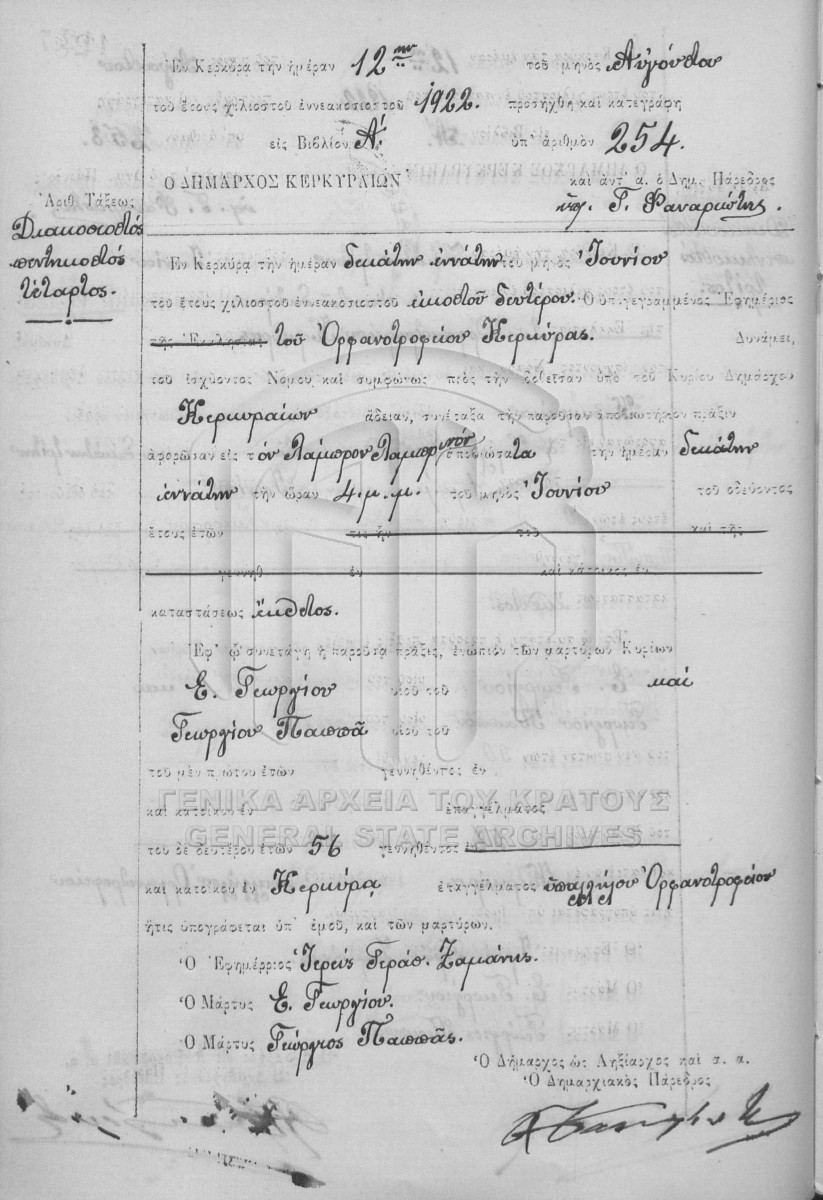 Ἐν Κερκύρᾳ τὴν ἡμέραν 12ην τοῦ μηνὸς Αὐγούστου
τοῦ ἔτους χιλιοστοῦ ἐννεακοσιοστοῦ 1922. προσήχθη καὶ κατεγράφη
εἰς Βιβλίον Α΄ ὑπ' ἀριθμὸν 254.
Ο ΔΗΜΑΡΧΟΣ ΚΕΡΚΥΡΑΙΩΝ καὶ ἀντ' α. ὁ Δημ. Πάρεδρος
Γ. Φαναριώτης
Ἀριθ. Τάξεως
Διακοσιοστός
πεντηκοστός
τέταρτος.
Ἐν Κερκύρᾳ τὴν ἡμέραν δεκάτην ἐννάτην τοῦ μηνὸς Ἰουνίου
τοῦ ἔτους χιλιοστοῦ ἐννεακοσιοστοῦ εἰκοστοῦ δευτέρου. Ὁ ὑπογεγραμμένος Ἐφημέριος
τῆς Ἐκκλησίας τοῦ Ὀρφανοτροφείου Κερκύρας. Δυνάμει,
τοῦ ἰσχύοντος Νόμου καὶ συμφώνως πρὸς τὴν δοθεῖσαν ὑπὸ τοῦ Κυρίου Δημάρχου
Κερκυραίων ἄδειαν, συνέταξα τὴν παροῦσαν ἀποβιωτήριον πρᾶξιν
ἀφορῶσαν εἰς τὸν Λάμπρον Λαμπρινόν ἀποβιώσαντα τὴν ἡμέραν δεκάτην
ἐννάτην τὴν ὥραν 4. μ. μ. τοῦ μηνὸς Ἰουνίου τοῦ ὁδεύοντος
ἔτους ἐτῶν τις ἦν τοῦ καὶ τῆς
γεννηθ ἐν καὶ κάτοικος ἐν
καταστάσεως ἔκθετος.
Ἐφ' ᾧ συνετάγη ἡ παροῦσα πρᾶξις, ἐνώπιον τῶν μαρτύρων Κυρίων
Ε. Γεωργίου υἱοῦ τοῦ καὶ
Γεωργίου Παππᾶ υἱοῦ τοῦ
τοῦ μὲν πρώτου ἐτῶν γεννηθέντος ἐν
καὶ κατοίκου ἐν ἐπαγγέλματος
ΓΕΝΙΚΑ ΑΡΧΕΙΑ ΤΟΥ ΚΡΑΤΟΥΣ
GENERAL STATE ARCHIVES
τοῦ δὲ δευτέρου ἐτῶν 56 γεννηθέντος ἐν
καὶ κατοίκου ἐν Κερκύρᾳ ἐπαγγέλματος ὑπαλλήλου Ὀρφανοτροφείου
ἥτις ὑπογράφεται ὑπ' ἐμοῦ, καὶ τῶν μαρτύρων.
Ὁ Ἐφημέρριος Ἱερεὺς Γεράσ. Ζαμάνης.
Ὁ Μάρτυς Ε. Γεωργίου.
Ὁ Μάρτυς Γεώργιος Παππᾶς.
Ὁ Δήμαρχος ὡς Ληξίαρχος καὶ σ. α.
Ὁ Δημαρχιακὸς Πάρεδρος